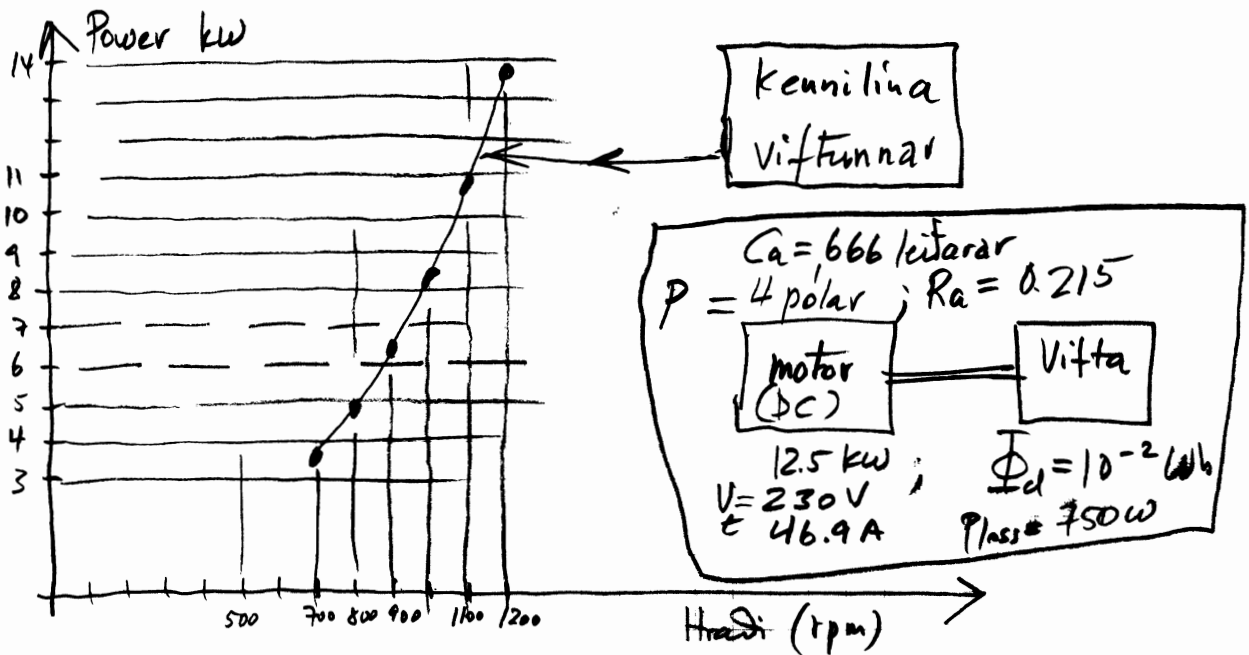 Power kw
14
11
10
9
8
7
6
5
4
3
500 700 800 900 1100 1200
Hraði (rpm)
Kennilína
viftunnar
Ca = 666 leiðarar
P = 4 pólar ; Ra = 0.215
motor
(DC)
Vifta
12.5 kW ; Φd = 10⁻² Wb
Vt = 230 V
46.9 A
Ploss = 750 W